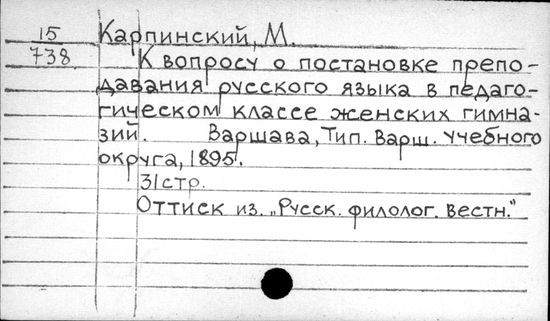 15 Карпинский, М.
738 К вопросу о постановке препо-
давания русского языка в педаго-
гическом классе женских гимна-
зий. Варшава, Тип. Варш. учебного
округа, 1895.
31стр.
Оттиск из „Русск. филолог. вестн."